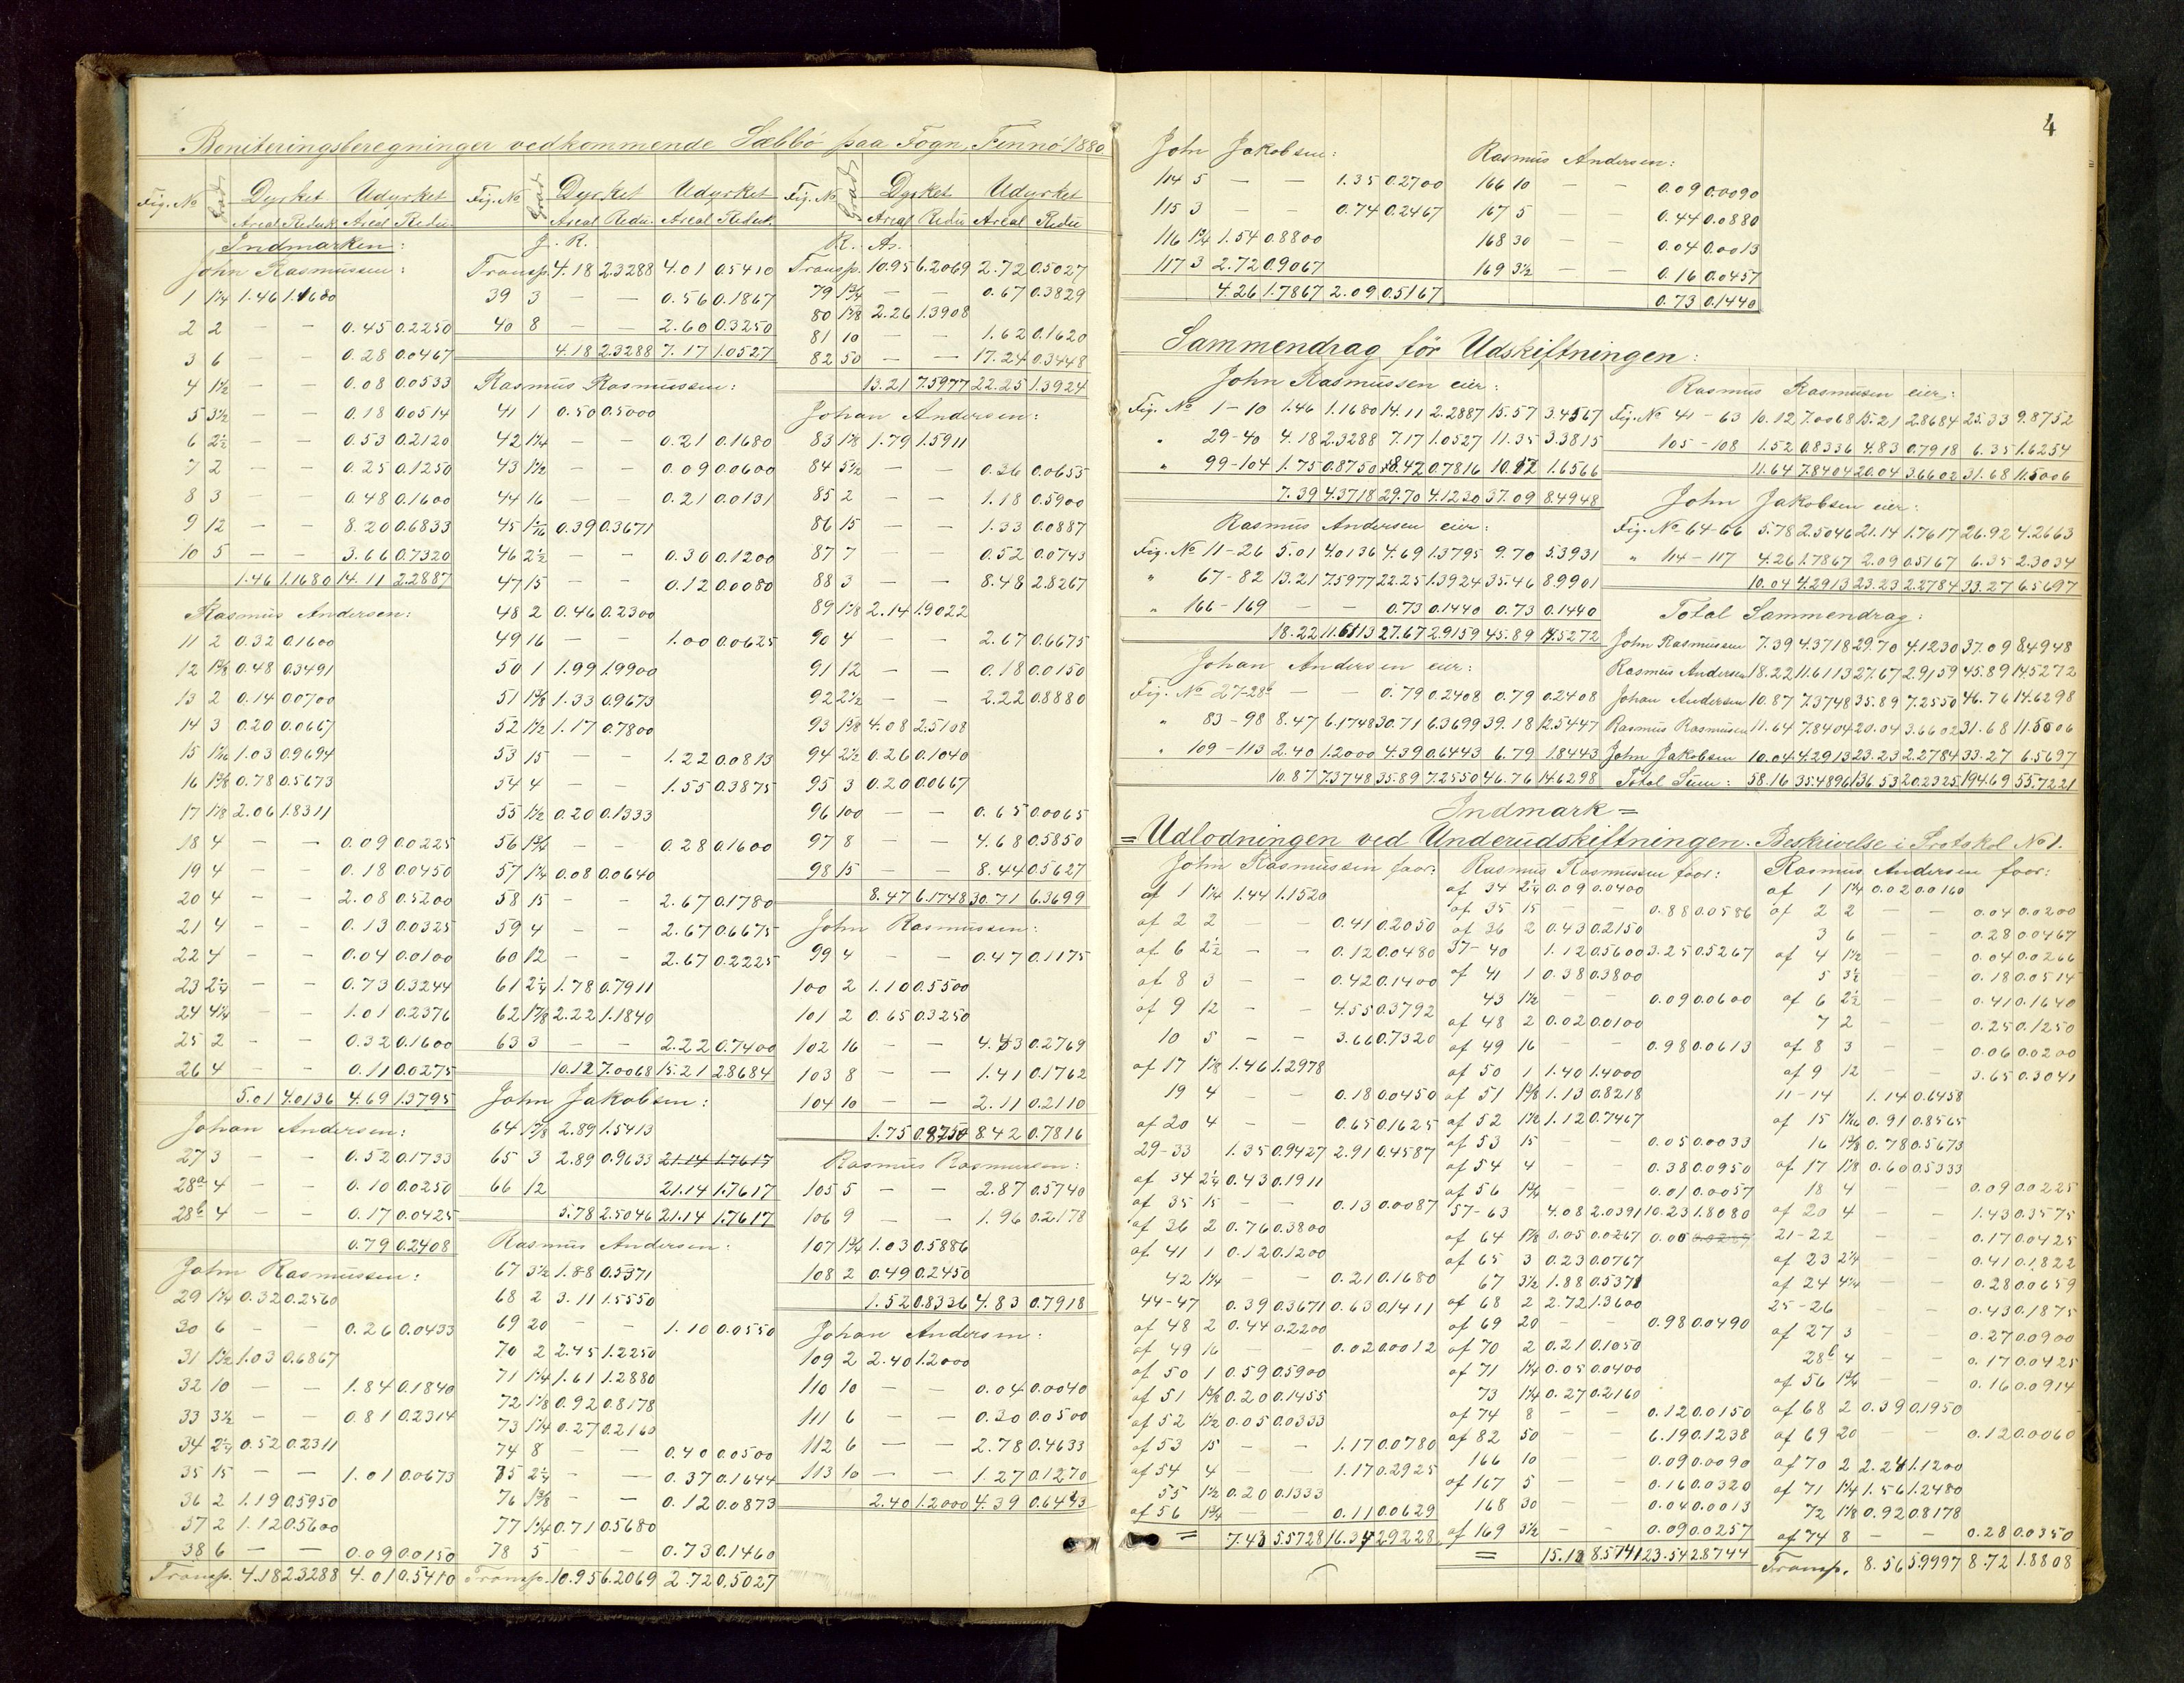 Boniteringsberegninger vedkommende Sæbbö paa Fogn, Finnö 1880
Fig. No Grad Dyrket Udyrket
Areal Reduk. Areal Redu.
Indmarken:
John Rasmussen:
1 1¼ 1.46 1.1680
2 2 — — 0.45 0.2250
3 6 — — 0.28 0.0467
4 1½ — — 0.08 0.0533
5 3½ — — 0.18 0.0514
6 2½ — — 0.53 0.2120
7 2 — — 0.25 0.1250
8 3 — — 0.48 0.1600
9 12 — — 8.20 0.6833
10 5 — — 3.66 0.7320
1.46 1.1680 14.11 2.2887
Rasmus Andersen:
11 2 0.32 0.1600
12 1⅜ 0.48 0.3491
13 2 0.14 0.0700
14 3 0.20 0.0667
15 1 1/16 1.03 0.9694
16 1⅜ 0.78 0.5673
17 1⅛ 2.06 1.8311
18 4 — — 0.09 0.0225
19 4 — — 0.18 0.0450
20 4 — — 2.08 0.5200
21 4 — — 0.13 0.0325
22 4 — — 0.04 0.0100
23 2¼ — — 0.73 0.3244
24 4¼ — — 1.01 0.2376
25 2 — — 0.32 0.1600
26 4 — — 0.11 0.0275
5.01 4.0136 4.69 1.3795
Johan Andersen:
27 3 — — 0.52 0.1733
28a 4 — — 0.10 0.0250
28b 4 — — 0.17 0.0425
0.79 0.2408
John Rasmussen:
29 1¼ 0.32 0.2560
30 6 — — 0.26 0.0433
31 1½ 1.03 0.6867
32 10 — — 1.84 0.1840
33 3½ — — 0.81 0.2314
34 2¼ 0.52 0.2311
35 15 — — 1.01 0.0673
36 2 1.19 0.5950
37 2 1.12 0.5600
38 6 — — 0.09 0.0150
Transp. 4.18 2.3288 4.01 0.5410
Fig. No Grad Dyrket Udyrket
Areal Redu. Areal Reduk.
J. R.
Transp. 4.18 2.3288 4.01 0.5410
39 3 — — 0.56 0.1867
40 8 — — 2.60 0.3250
4.18 2.3288 7.17 1.0527
Rasmus Rasmussen:
41 1 0.50 0.5000
42 1¼ — — 0.21 0.1680
43 1½ — — 0.09 0.0600
44 16 — — 0.21 0.0131
45 1 1/16 0.39 0.3671
46 2½ — — 0.30 0.1200
47 15 — — 0.12 0.0080
48 2 0.46 0.2300
49 16 — — 1.00 0.0625
50 1 1.99 1.9900
51 1⅜ 1.33 0.9673
52 1½ 1.17 0.7800
53 15 — — 1.22 0.0813
54 4 — — 1.55 0.3875
55 1½ 0.20 0.1333
56 1¾ — — 0.28 0.1600
57 1¼ 0.08 0.0640
58 15 — — 2.67 0.1780
59 4 — — 2.67 0.6675
60 12 — — 2.67 0.2225
61 2¼ 1.78 0.7911
62 1⅞ 2.22 1.1840
63 3 — — 2.22 0.7400
10.12 7.0068 15.21 2.8684
John Jakobsen:
64 1⅞ 2.89 1.5413
65 3 2.89 0.9633 21.14 1.7617
66 12 21.14 1.7617
5.78 2.5046 21.14 1.7617
Rasmus Andersen:
67 3½ 1.88 0.5371
68 2 3.11 1.5550
69 20 — — 1.10 0.0550
70 2 2.45 1.2250
71 1¼ 1.61 1.2880
72 1⅛ 0.92 0.8178
73 1¼ 0.27 0.2160
74 8 — — 0.40 0.0500
75 2¼ — — 0.37 0.1644
76 1⅜ — — 0.12 0.0873
77 1¼ 0.71 0.5680
78 5 — — 0.73 0.1460
Transp. 10.95 6.2069 2.72 0.5027
Fig. No Grad Dyrket Udyrket
Areal Redu Areal Redu
R. An.
Transp. 10.95 6.2069 2.72 0.5027
79 1¾ — — 0.67 0.3829
80 1⅝ 2.26 1.3908
81 10 — — 1.62 0.1620
82 50 — — 17.24 0.3448
13.21 7.5977 22.25 1.3924
Johan Andersen:
83 1⅛ 1.79 1.5911
84 5½ — — 0.36 0.0655
85 2 — — 1.18 0.5900
86 15 — — 1.33 0.0887
87 7 — — 0.52 0.0743
88 3 — — 8.48 2.8267
89 1⅛ 2.14 1.9022
90 4 — — 2.67 0.6675
91 12 — — 0.18 0.0150
92 2½ — — 2.22 0.8880
93 1⅝ 4.08 2.5108
94 2½ 0.26 0.1040
95 3 0.20 0.0667
96 100 — — 0.65 0.0065
97 8 — — 4.68 0.5850
98 15 — — 8.44 0.5627
8.47 6.1748 30.71 6.3699
John Rasmussen:
99 4 — — 0.47 0.1175
100 2 1.10 0.5500
101 2 0.65 0.3250
102 16 — — 4.43 0.2769
103 8 — — 1.41 0.1762
104 10 — — 2.11 0.2110
1.75 0.8750 8.42 0.7816
Rasmus Rasmussen:
105 5 — — 2.87 0.5740
106 9 — — 1.96 0.2178
107 1¾ 1.03 0.5886
108 2 0.49 0.2450
1.52 0.8336 4.83 0.7918
Johan Andersen:
109 2 2.40 1.2000
110 10 — — 0.04 0.0040
111 6 — — 0.30 0.0500
112 6 — — 2.78 0.4633
113 10 — — 1.27 0.1270
2.40 1.2000 4.39 0.6443
4
John Jakobsen:
114 5 — — 1.35 0.2700
115 3 — — 0.74 0.2467
116 1¾ 1.54 0.8800
117 3 2.72 0.9067
4.26 1.7867 2.09 0.5167
Rasmus Andersen:
166 10 — — 0.09 0.0090
167 5 0.44 0.0880
168 30 — — 0.04 0.0013
169 3½ — — 0.16 0.0457
0.73 0.1440
Sammendrag för Udskiftningen:
John Rasmussen eier:
Fig. No 1-10 1.46 1.1680 14.11 2.2887 15.57 3.4567
" 29-40 4.18 2.3288 7.17 1.0527 11.35 3.3815
" 99-104 1.75 0.8750 8.42 0.7816 10.17 1.6566
7.39 4.3718 29.70 4.1230 37.09 8.4948
Rasmus Andersen eier:
Fig. No 11-26 5.01 4.0136 4.69 1.3795 9.70 5.3931
" 67-82 13.21 7.5977 22.25 1.3924 35.46 8.9901
" 166-169 — — 0.73 0.1440 0.73 0.1440
18.22 11.6113 27.67 2.9159 45.89 14.5272
Johan Andersen eier:
Fig. No 27-28b — — 0.79 0.2408 0.79 0.2408
" 83-98 8.47 6.1748 30.71 6.3699 39.18 12.5447
" 109-113 2.40 1.2000 4.39 0.6443 6.79 1.8443
10.87 7.3748 35.89 7.2550 46.76 14.6298
Rasmus Rasmussen eier:
Fig. No 41-63 10.12 7.0068 15.21 2.8684 25.33 9.8752
105-108 1.52 0.8336 4.83 0.7918 6.35 1.6254
11.64 7.8404 20.04 3.6602 31.68 11.5006
John Jakobsen eier:
Fig. No 64-66 5.78 2.5046 21.14 1.7617 26.92 4.2663
" 114-117 4.26 1.7867 2.09 0.5167 6.35 2.3034
10.04 4.2913 23.23 2.2784 33.27 6.5697
Total Sammendrag:
John Rasmussen 7.39 4.3718 29.70 4.1230 37.09 8.4948
Rasmus Andersen 18.22 11.6113 27.67 2.9159 45.89 14.5272
Johan Andersen 10.87 7.3748 35.89 7.2550 46.76 14.6298
Rasmus Rasmussen 11.64 7.8404 20.04 3.6602 31.68 11.5006
John Jakobsen 10.04 4.2913 23.23 2.2784 33.27 6.5697
Total Sum: 58.16 35.4896 136.53 20.2325 194.69 55.7221
Indmark=
=Udlodningen ved Underudskiftningen. Beskrivelse i Protokol No 1.
John Rasmussen faar:
af 1 1¼ 1.44 1.1520
af 2 2 — — 0.41 0.2050
af 6 2½ — — 0.12 0.0480
af 8 3 — — 0.42 0.1400
af 9 12 — — 4.55 0.3792
10 5 — — 3.66 0.7320
af 17 1⅛ 1.46 1.2978
19 4 — — 0.18 0.0450
af 20 4 — — 0.65 0.1625
29-33 1.35 0.9427 2.91 0.4587
af 34 2¼ 0.43 0.1911
af 35 15 — — 0.13 0.0087
af 36 2 0.76 0.3800
af 41 1 0.12 0.1200
42 1¼ — — 0.21 0.1680
44-47 0.39 0.3671 0.63 0.1411
af 48 2 0.44 0.2200
af 49 16 — — 0.02 0.0012
af 50 1 0.59 0.5900
af 51 1⅜ 0.20 0.1455
af 52 1½ 0.05 0.0333
af 53 15 — — 1.17 0.0780
af 54 4 — — 1.17 0.2925
55 1½ 0.20 0.1333
af 56 1¾ — — 0.11 0.0629
= 7.43 5.5728 16.34 2.9228
Rasmus Rasmussen faar:
af 34 2¼ 0.09 0.0400
af 35 15 — — 0.88 0.0586
af 36 2 0.43 0.2150
37-40 1.12 0.5600 3.25 0.5267
af 41 1 0.38 0.3800
43 1½ — — 0.09 0.0600
af 48 2 0.02 0.0100
af 49 16 — — 0.98 0.0613
af 50 1 1.40 1.4000
af 51 1⅜ 1.13 0.8218
af 52 1½ 1.12 0.7467
af 53 15 — — 0.05 0.0033
af 54 4 — — 0.38 0.0950
af 56 1¾ — — 0.01 0.0057
57-63 4.08 2.0391 10.23 1.8080
af 64 1⅞ 0.05 0.0267 0.00
af 65 3 0.23 0.0767
67 3½ 1.88 0.5371
af 68 2 2.72 1.3600
af 69 20 — — 0.98 0.0490
af 70 2 0.21 0.1050
af 71 1¼ 0.05 0.0400
73 1¼ 0.27 0.2160
af 74 8 — — 0.12 0.0150
af 82 50 — — 6.19 0.1238
166 10 — — 0.09 0.0090
af 167 5 — — 0.16 0.0320
168 30 — — 0.04 0.0013
af 169 3½ — — 0.09 0.0257
= 15.18 8.5741 23.54 2.8744
Rasmus Andersen faar:
af 1 1¼ 0.02 0.0160
af 2 2 — — 0.04 0.0200
3 6 — — 0.28 0.0467
af 4 1½ — — 0.04 0.0266
5 3½ — — 0.18 0.0514
af 6 2½ — — 0.41 0.1640
7 2 — — 0.25 0.1250
af 8 3 — — 0.06 0.0200
af 9 12 — — 3.65 0.3041
11-14 1.14 0.6458
af 15 1 1/16 0.91 0.8565
16 1⅜ 0.78 0.5673
af 17 1⅛ 0.60 0.5333
18 4 — — 0.09 0.0225
af 20 4 — — 1.43 0.3575
21-22 — — 0.17 0.0425
af 23 2¼ — — 0.41 0.1822
af 24 4¼ — — 0.28 0.0659
25-26 — — 0.43 0.1875
af 27 3 — — 0.27 0.0900
28b 4 — — 0.17 0.0425
af 56 1¾ — — 0.16 0.0914
af 68 2 0.39 0.1950
af 69 20 — — 0.12 0.0060
af 70 2 2.24 1.1200
af 71 1¼ 1.56 1.2480
72 1⅛ 0.92 0.8178
af 74 8 — — 0.28 0.0350
Transp. 8.56 5.9997 8.72 1.8808